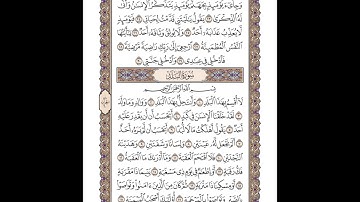 وَجِا۟يٓءَ يَوْمَئِذٍۭ بِجَهَنَّمَ ۚ يَوْمَئِذٍ يَتَذَكَّرُ ٱلْإِنسَٰنُ وَأَنَّىٰ
لَهُ ٱلذِّكْرَىٰ ٢٣ يَقُولُ يَٰلَيْتَنِى قَدَّمْتُ لِحَيَاتِى ٢٤ فَيَوْمَئِذٍ
لَّا يُعَذِّبُ عَذَابَهُۥٓ أَحَدٌ ٢٥ وَلَا يُوثِقُ وَثَاقَهُۥٓ أَحَدٌ ٢٦ يَٰٓأَيَّتُهَا
ٱلنَّفْسُ ٱلْمُطْمَئِنَّةُ ٢٧ ٱرْجِعِىٓ إِلَىٰ رَبِّكِ رَاضِيَةً مَّرْضِيَّةً ٢٨
فَٱدْخُلِى فِى عِبَٰدِى ٢٩ وَٱدْخُلِى جَنَّتِى ٣٠
سُورَةُ الْبَلَدِ
بِسْمِ ٱللَّهِ ٱلرَّحْمَٰنِ ٱلرَّحِيمِ
لَآ أُقْسِمُ بِهَٰذَا ٱلْبَلَدِ ١ وَأَنتَ حِلٌّۢ بِهَٰذَا ٱلْبَلَدِ ٢ وَوَالِدٍ وَمَا وَلَدَ
٣ لَقَدْ خَلَقْنَا ٱلْإِنسَٰنَ فِى كَبَدٍ ٤ أَيَحْسَبُ أَن لَّن يَقْدِرَ عَلَيْهِ
أَحَدٌ ٥ يَقُولُ أَهْلَكْتُ مَالًا لُّبَدًا ٦ أَيَحْسَبُ أَن لَّمْ يَرَهُۥٓ أَحَدٌ
٧ أَلَمْ نَجْعَل لَّهُۥ عَيْنَيْنِ ٨ وَلِسَانًا وَشَفَتَيْنِ ٩ وَهَدَيْنَٰهُ
ٱلنَّجْدَيْنِ ١٠ فَلَا ٱقْتَحَمَ ٱلْعَقَبَةَ ١١ وَمَآ أَدْرَىٰكَ مَا ٱلْعَقَبَةُ ١٢
فَكُّ رَقَبَةٍ ١٣ أَوْ إِطْعَٰمٌ فِى يَوْمٍ ذِى مَسْغَبَةٍ ١٤ يَتِيمًا ذَا مَقْرَبَةٍ
١٥ أَوْ مِسْكِينًا ذَا مَتْرَبَةٍ ١٦ ثُمَّ كَانَ مِنَ ٱلَّذِينَ ءَامَنُوا۟ وَتَوَاصَوْا۟
بِٱلصَّبْرِ وَتَوَاصَوْا۟ بِٱلْمَرْحَمَةِ ١٧ أُو۟لَٰٓئِكَ أَصْحَٰبُ ٱلْمَيْمَنَةِ ١٨